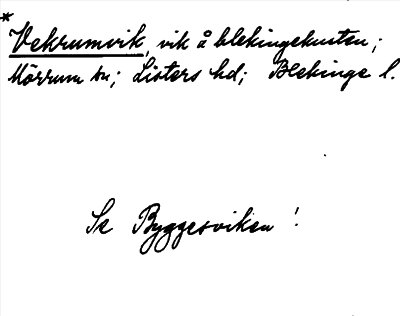 * Vekrumvik, vik å blekingekusten;
Mörrum sn; Listers hd; Blekinge l.
Se Byggesviken!